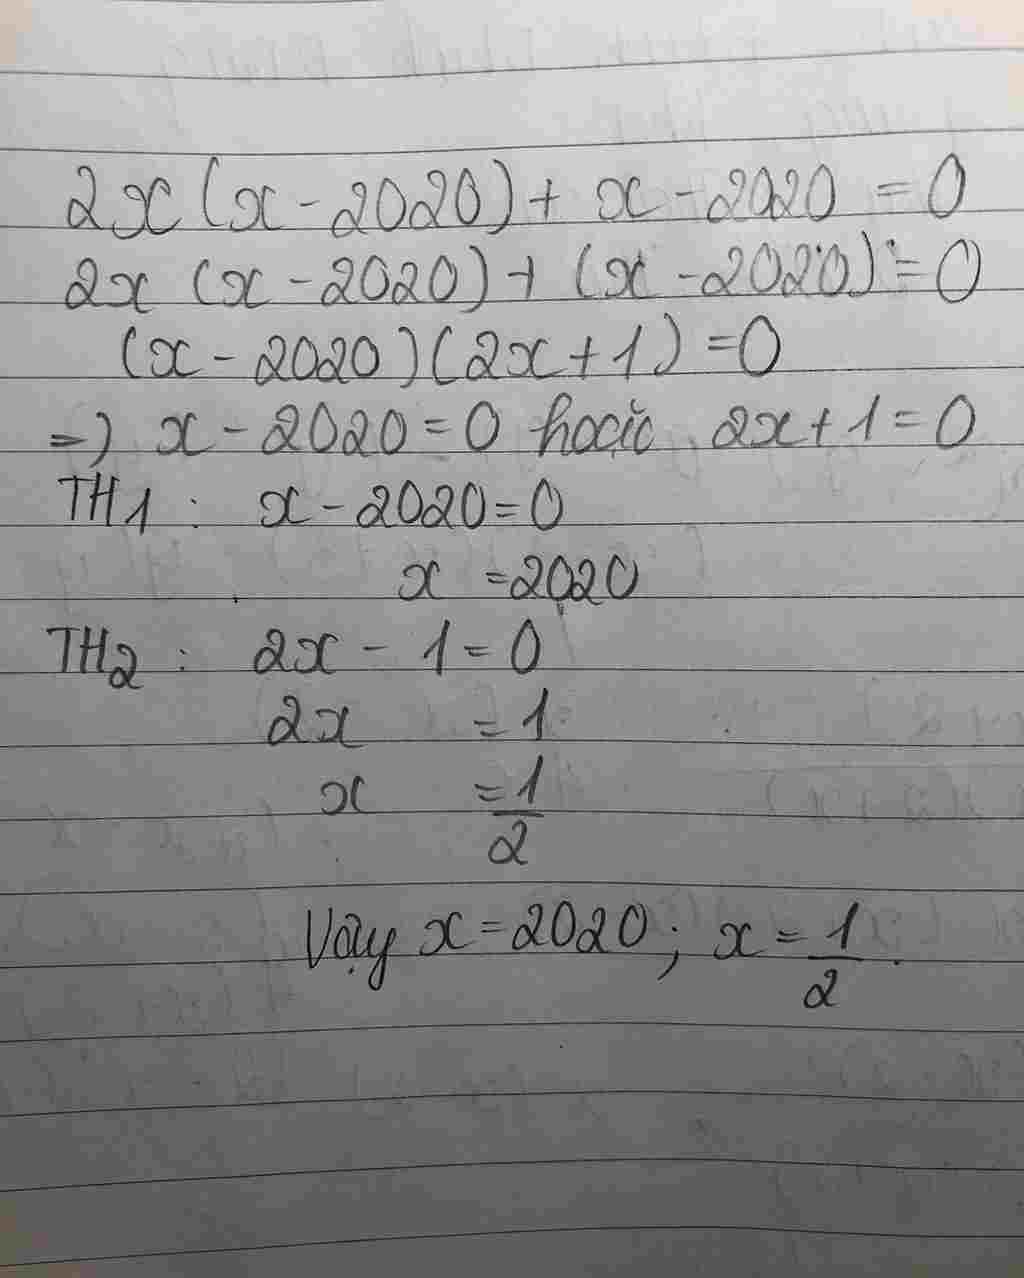 2x(x-2020)+x-2020=0
2x(x-2020)+(x-2020)=0
(x-2020)(2x+1)=0
=) x-2020=0 hoặc 2x+1=0
TH1: x-2020=0
x=2020
TH2: 2x-1=0
2x=1
x=1/2
Vậy x=2020; x=1/2.